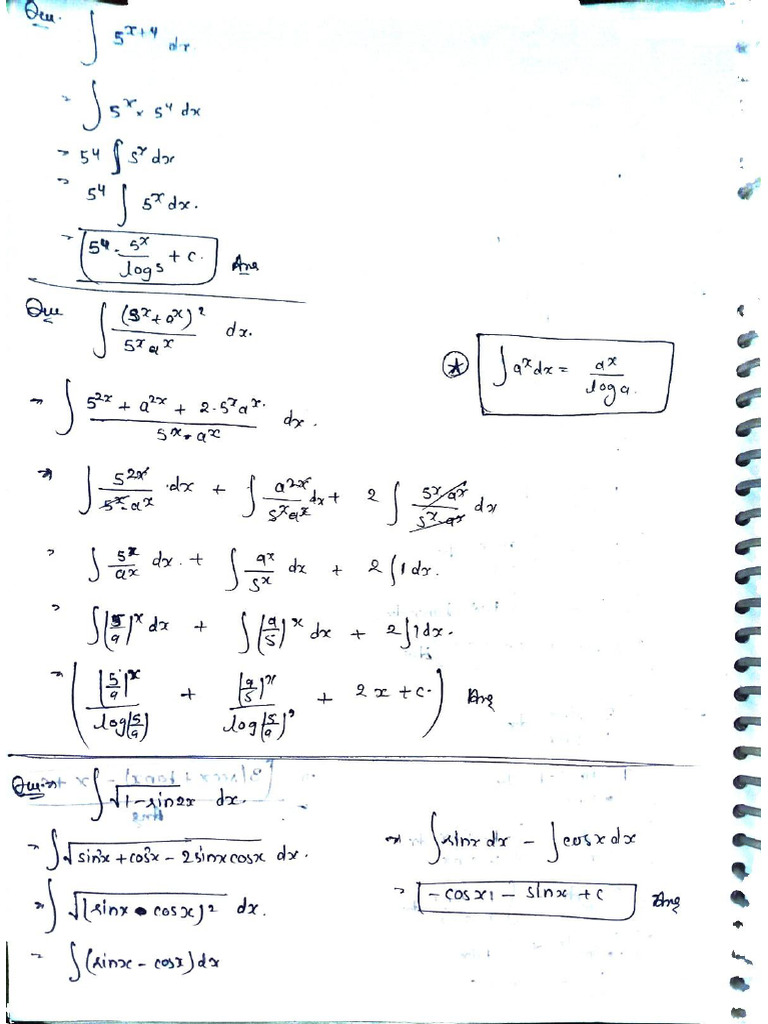 Que. ∫ 5^{x+4} dx.
⇒ ∫ 5^x × 5^4 dx
⇒ 5^4 ∫ 5^x dx
⇒ 5^4 ∫ 5^x dx.
⇒ 5^4 · 5^x / log 5 + c. Ans
Que ∫ (5^x + a^x)^2 / 5^x a^x dx.
⊛ ∫ a^x dx = a^x / log a.
⇒ ∫ 5^{2x} + a^{2x} + 2·5^x a^x / 5^x · a^x dx.
⇒ ∫ 5^{2x} / 5^x · a^x · dx + ∫ a^{2x} / 5^x a^x dx + 2 ∫ 5^x · a^x / 5^x · a^x dx
⇒ ∫ 5^x / a^x dx. + ∫ a^x / 5^x dx + 2 ∫ 1 dx.
⇒ ∫ (5/a)^x dx + ∫ (a/5)^x dx + 2 ∫ 1 dx.
⇒ ( (5/a)^x / log(5/a) + (a/5)^x / log(5/a) + 2x + c. ) Ans
Que ∫ √(1 - sin 2x) dx.
⇒ ∫ √(sin²x + cos²x - 2 sin x cos x) dx.
⇒ ∫ √((sin x • cos x)^2) dx.
⇒ ∫ (sin x - cos x) dx
⇒ ∫ sin x dx - ∫ cos x dx
⇒ - cos x - sin x + c Ans